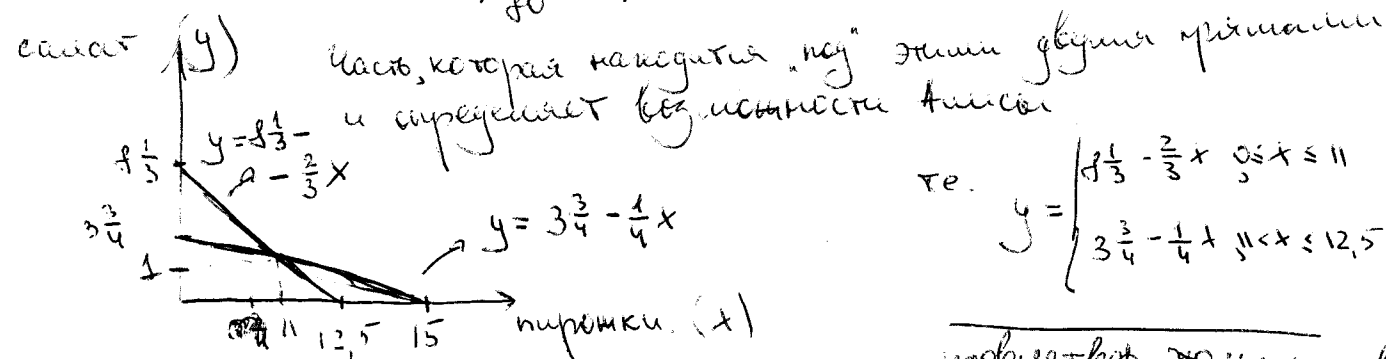 80
салат (y) Часть, которая находится "под" этими двумя прямыми
и определяет возможности Алисы
8 1/3 y = 8 1/3 -
- 2/3 x
3 3/4
1
y = 3 3/4 - 1/4 x
11 12,5 15 пирожки (x)
те. y = { 8 1/3 - 2/3 x , 0 ≤ x ≤ 11
3 3/4 - 1/4 x , 11 < x ≤ 12,5